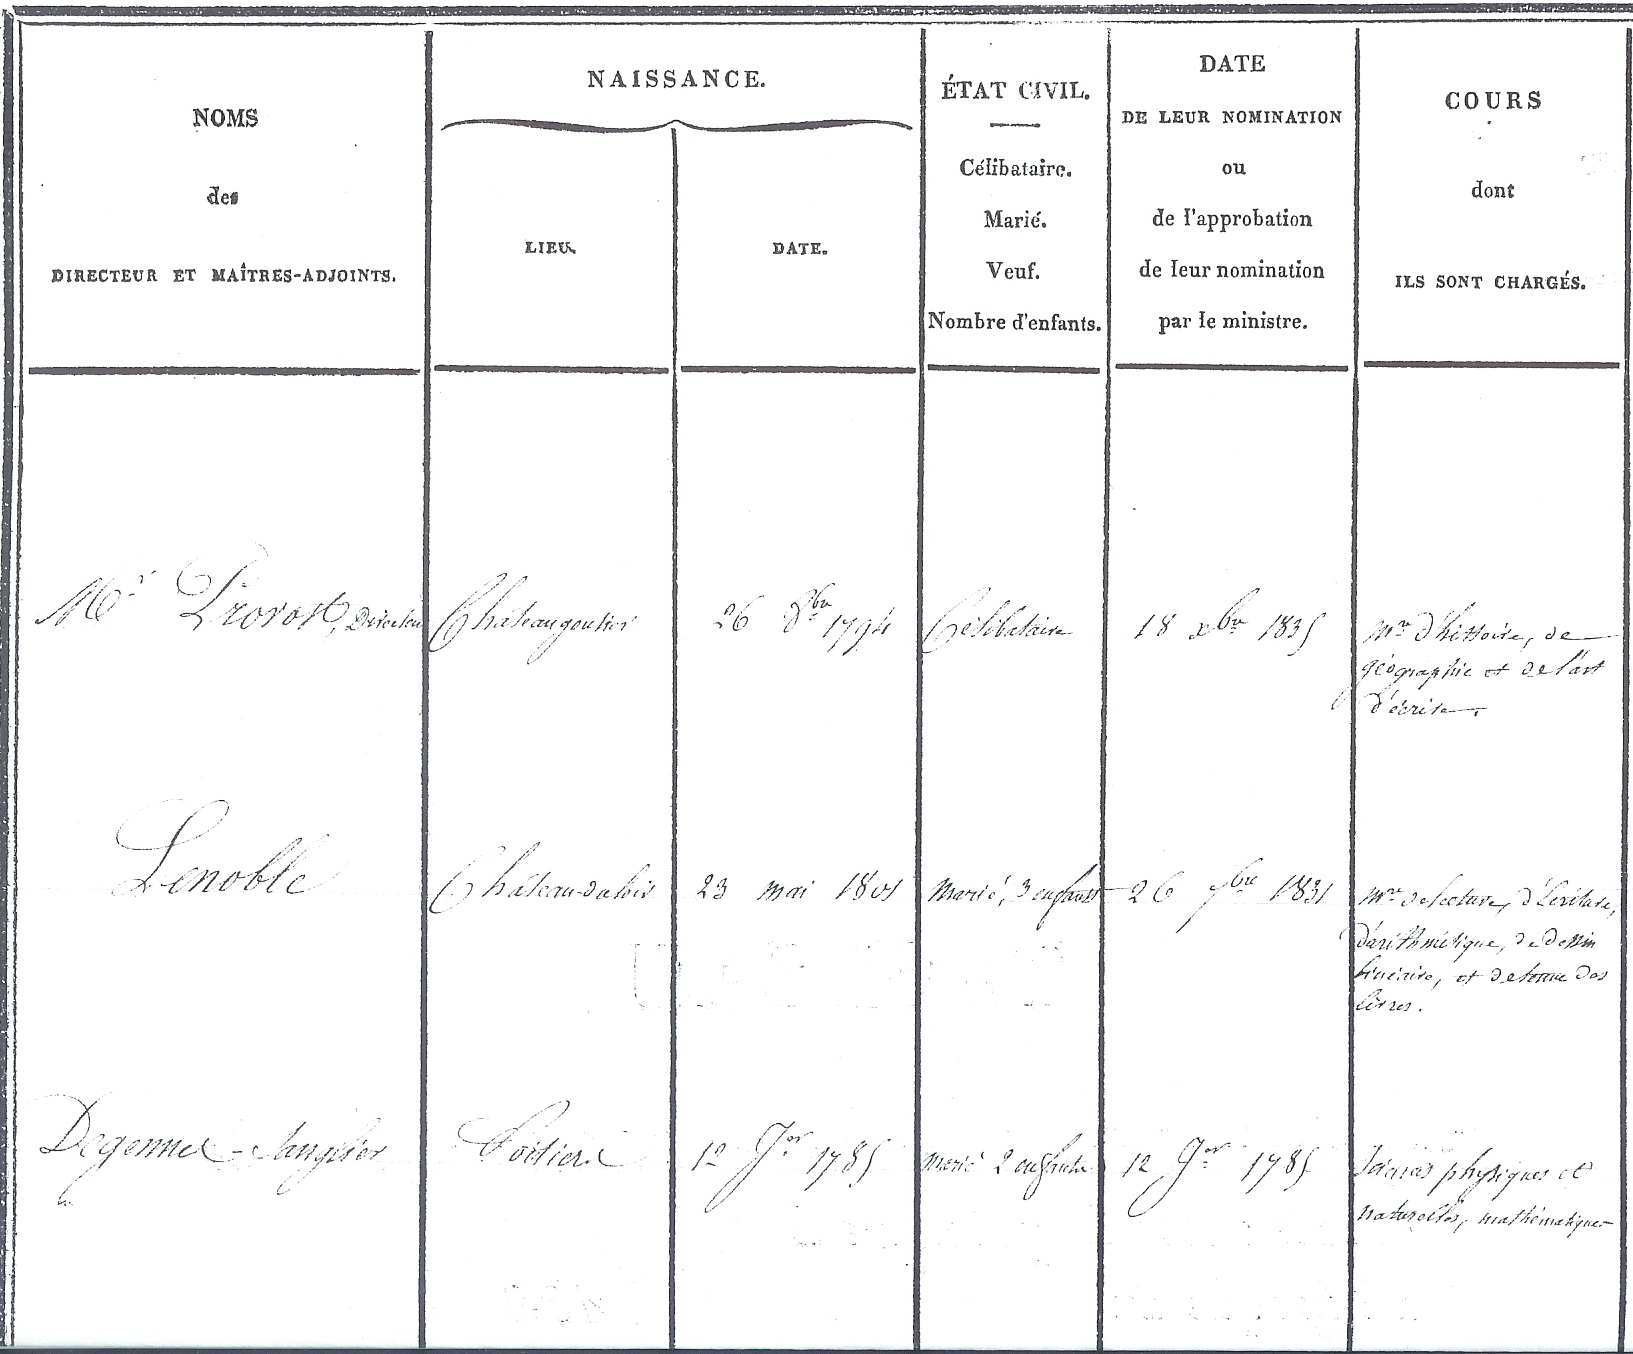 NOMS
des
DIRECTEUR ET MAÎTRES-ADJOINTS.
NAISSANCE.
LIEU.
DATE.
ÉTAT CIVIL.
Célibataire.
Marié.
Veuf.
Nombre d'enfants.
DATE
DE LEUR NOMINATION
ou
de l'approbation
de leur nomination
par le ministre.
COURS
dont
ILS SONT CHARGÉS.
Mr Provost, Directeur
Châteaugontier
26 8bre 1794
Célibataire
18 xbre 1835
Mre d'histoire, de
géographie et de l'art
d'écrire.
Lenoble
Château-du-loir
23 mai 1801
marié, 3 enfants
26 7bre 1831
Mre de lecture, d'écriture,
d'arithmétique, de dessin
linéaire, et de tenue des
livres.
Degennes-Sanglier
Poitiers
12 Jer 1785
marié 2 enfants
12 Jer 1785
Sciences physiques et
naturelles, mathématiques